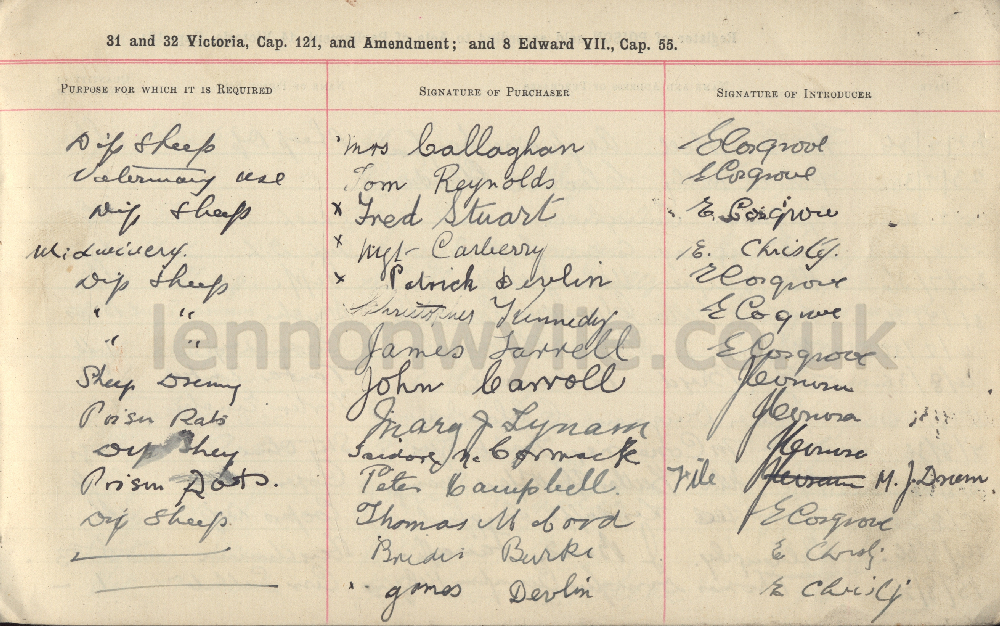 31 and 32 Victoria, Cap. 121, and Amendment; and 8 Edward VII., Cap. 55.
PURPOSE FOR WHICH IT IS REQUIRED SIGNATURE OF PURCHASER SIGNATURE OF INTRODUCER
Dip Sheep Mrs Callaghan E Cosgrove
Veterinary use Tom Reynolds E Cosgrove
Dip Sheep x Fred Stuart E. Cosgrove
Midwivery. x Mgt- Carberry E. Christy.
Dip Sheep x Patrick Devlin E Cosgrove
" " Christopher Kennedy E Cogrove
" " James Farrell E Cosgrove
Sheep John Carroll
Poison Rats Mary J Lynam
Dip Shep Mc Cormack
Poison Rats. Peter Campbell. M. J.
Dip Sheep. Thomas McCord E Cosgrove
Burke E Christy
James Devlin E Christy
lennonwylie.co.uk